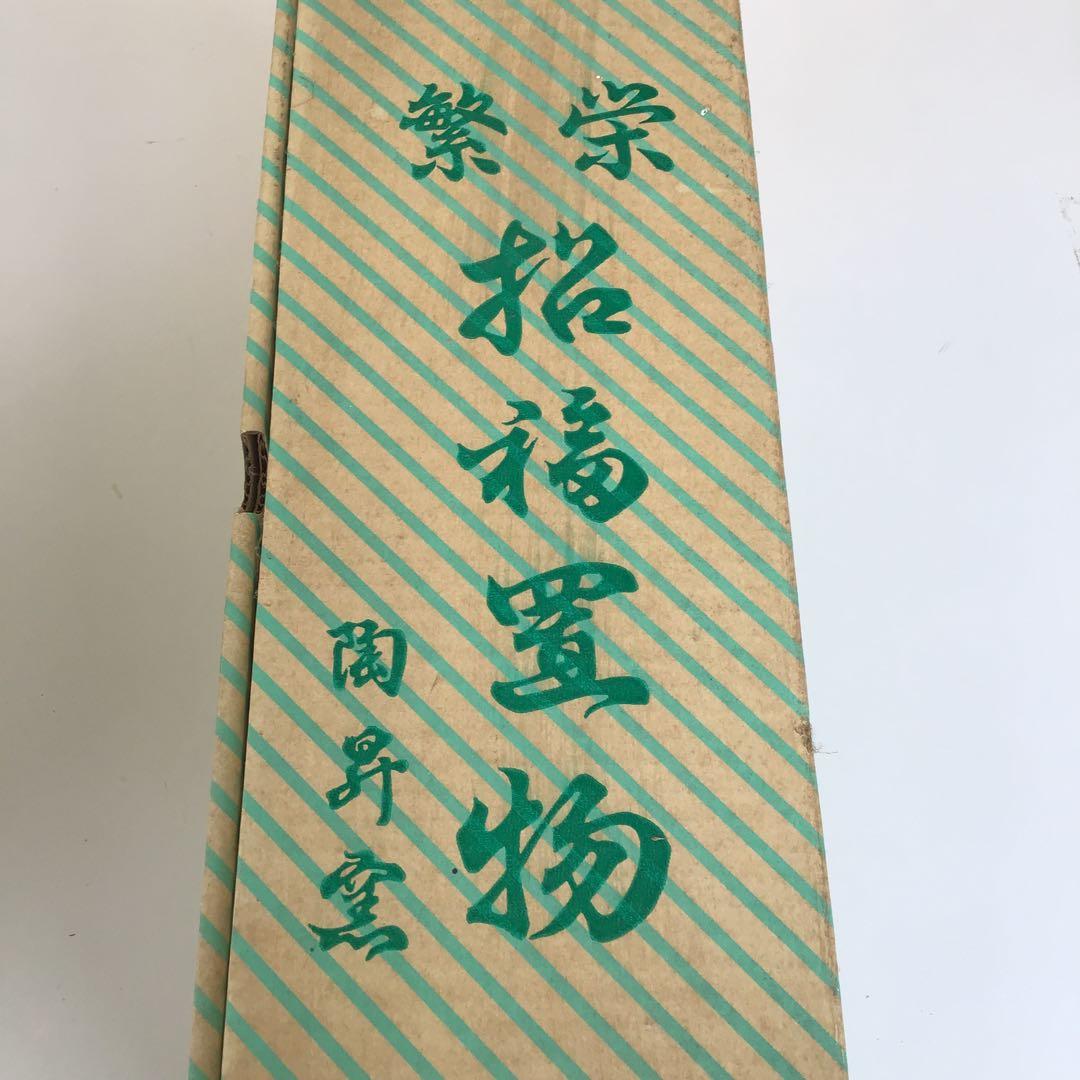 繁栄
招福置物
陶昇窯